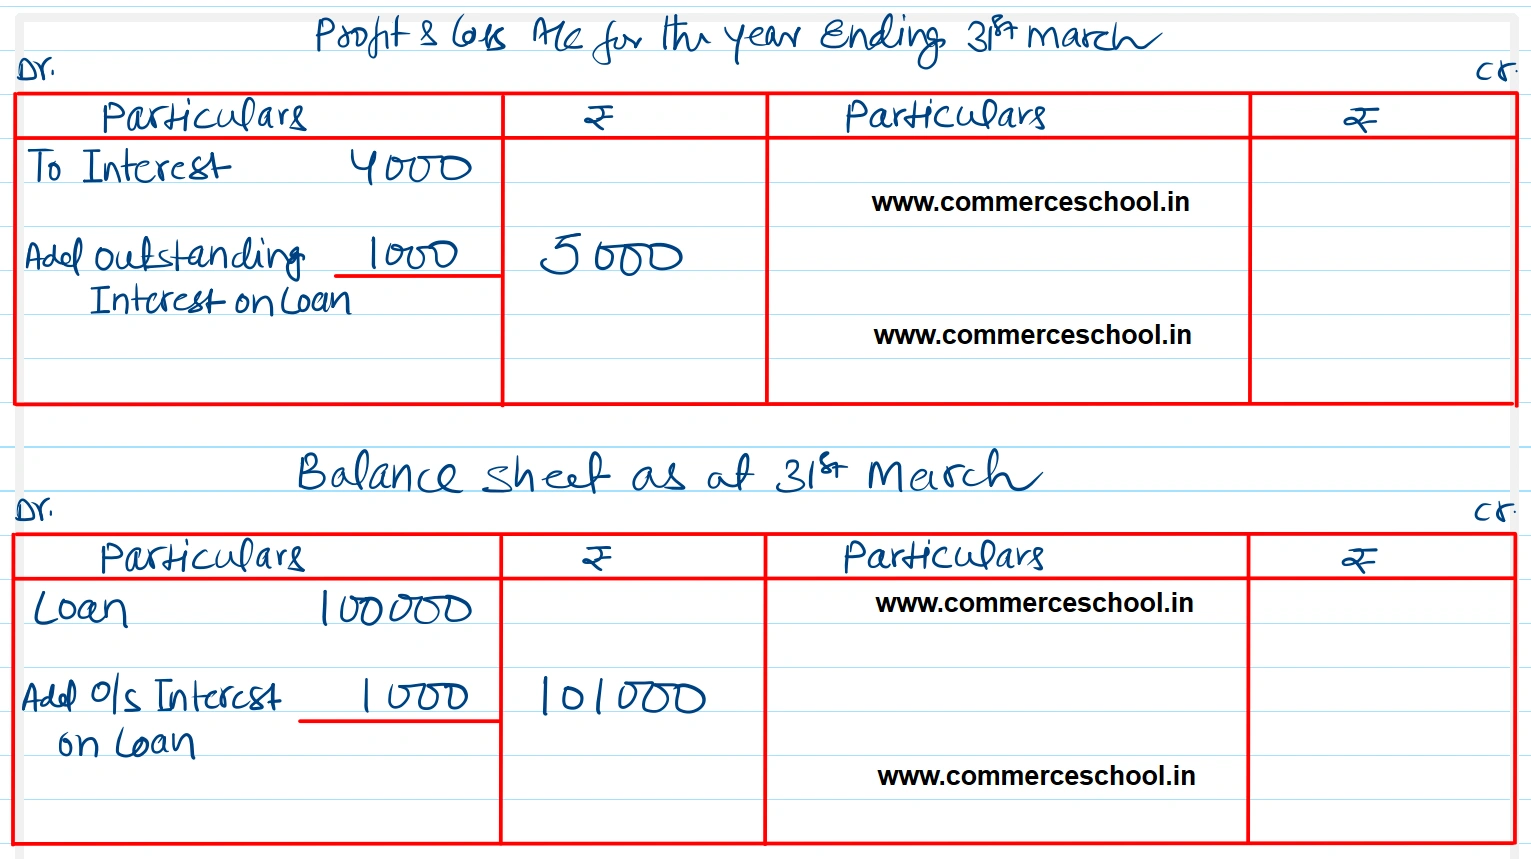 Profit & Loss A/c for the year Ending 31st march
Dr. Cr.
Particulars ₹ Particulars ₹
To Interest 4000
www.commerceschool.in
Add outstanding 1000 5000
Interest on Loan
www.commerceschool.in
Balance sheet as at 31st March
Dr. Cr.
Particulars ₹ Particulars ₹
Loan 100000
www.commerceschool.in
Add O/s Interest 1000 101000
on Loan
www.commerceschool.in